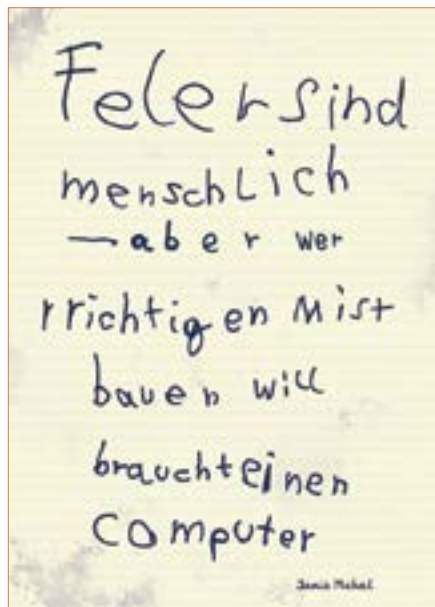 Felersind
menschLich
— aber wer
rrichtigen Mist
bauen will
brauchteinen
COMputer